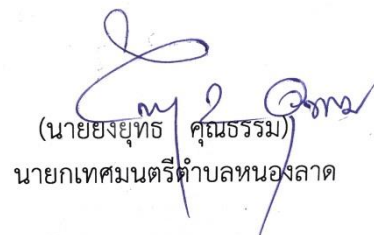 (นายยงยุทธ คุณธรรม)
นายกเทศมนตรีตำบลหนองลาด